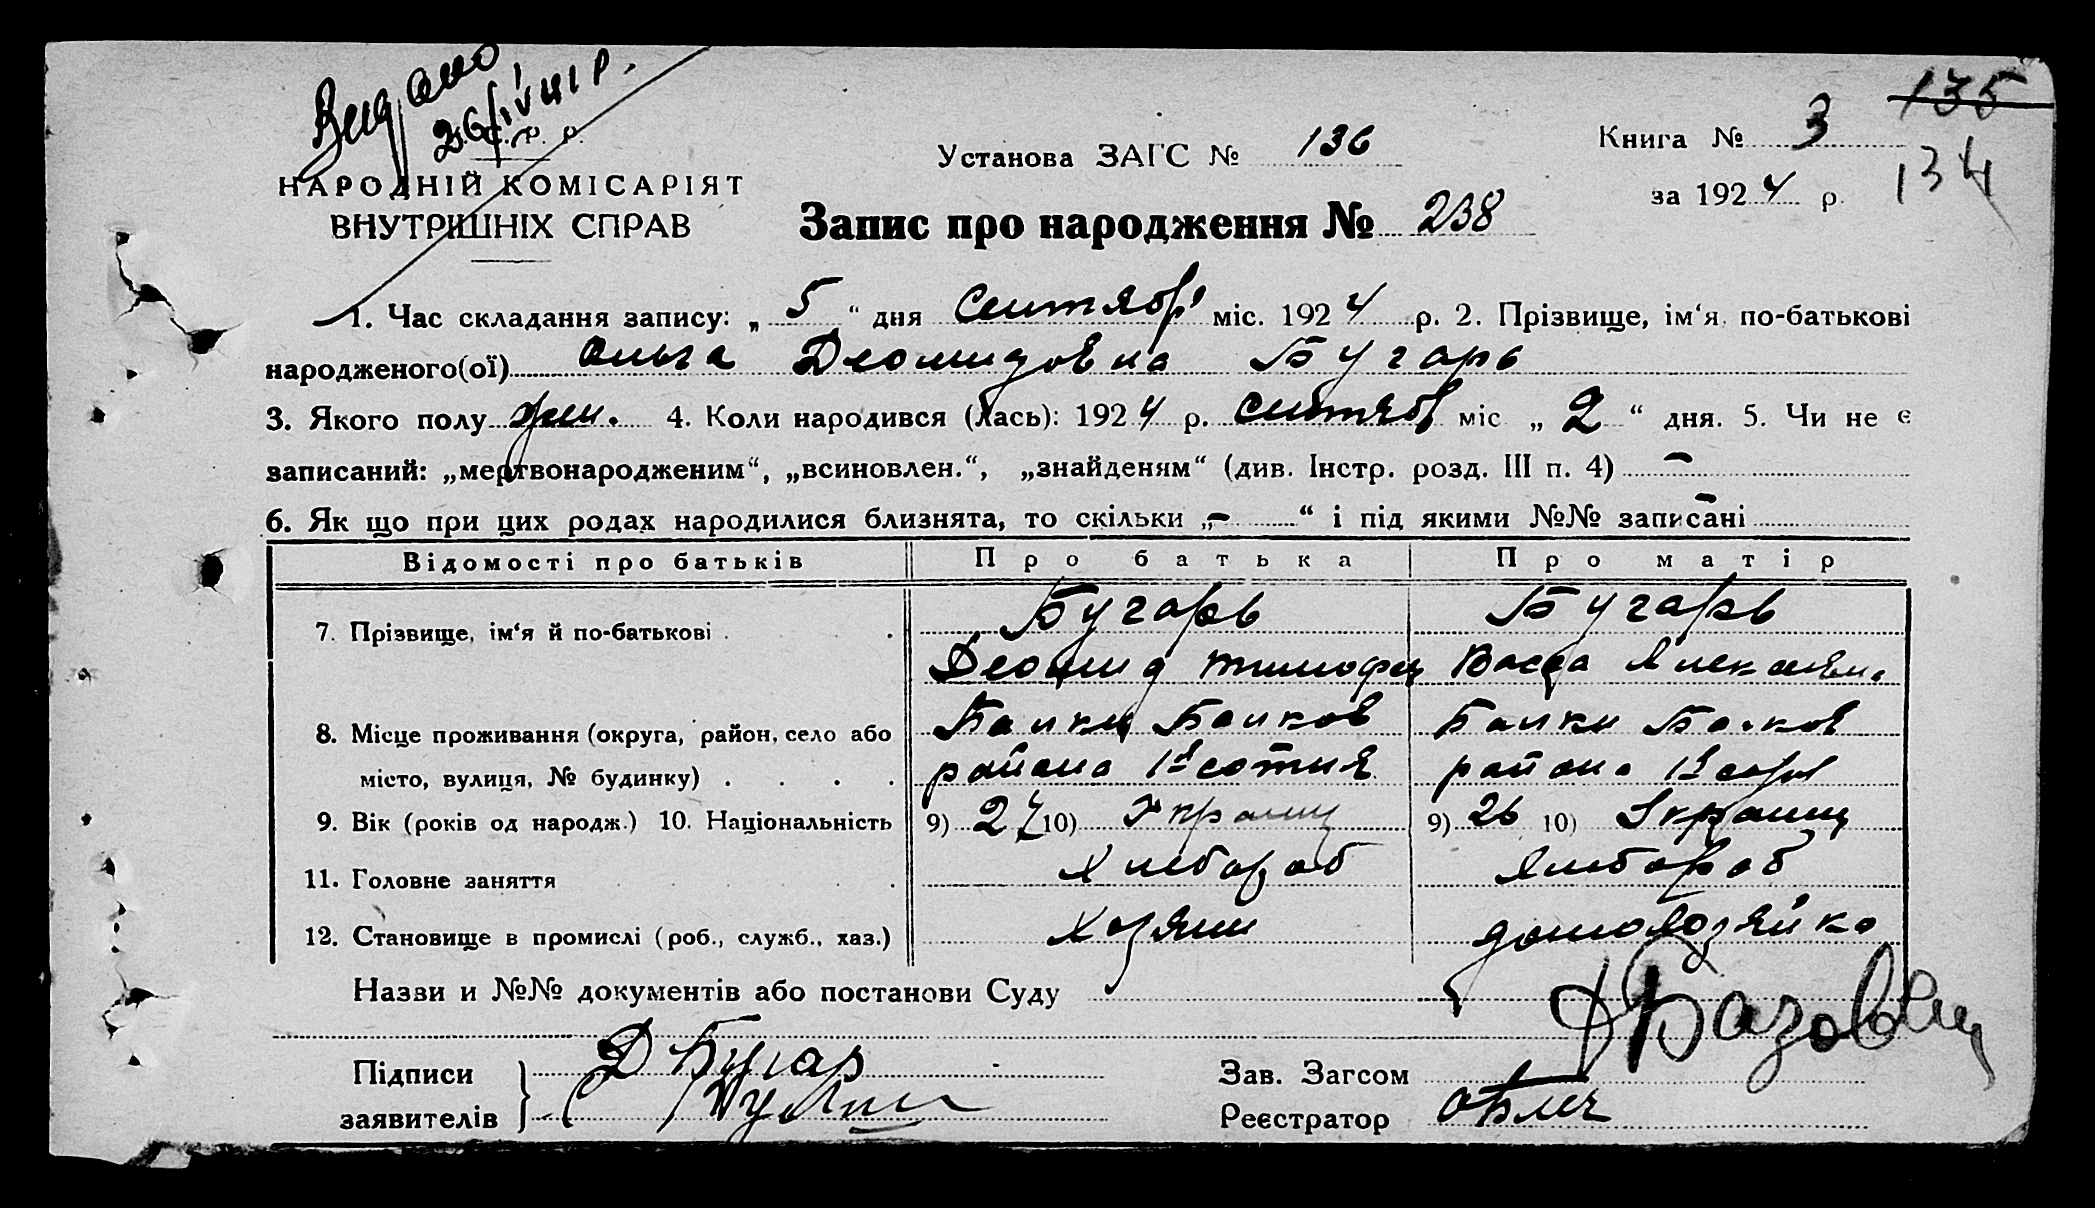 Видано
135
У. С. Р. Р.
Установа ЗАГС № 136
Книга № 3
134
НАРОДНІЙ КОМІСАРІЯТ
ВНУТРІШНІХ СПРАВ
за 1924 р.
Запис про народження № 238
1. Час складання запису: „ 5 “ дня Сентябр міс. 1924 р. 2. Прізвище, ім‘я, по-батькові
народженого(ої) Ольга Деомидовна Бугарь
3. Якого полу жен. 4. Коли народився (лась): 1924 р. сентяб міс „ 2 “ дня. 5. Чи не є
записаний: „мертвонародженим“, „всиновлен.“, „знайденям“ (див. Інстр. розд. III п. 4) –
6. Як що при цих родах народилися близнята, то скільки „ – “ і під якими №№ записані –
Відомості про батьків Про батька Про матір
7. Прізвище, ім‘я й по-батькові Бугарь Бугарь
Деомид Тимофи Васса
8. Місце проживання (округа, район, село або Балки Балков Балки Балков
місто, вулиця, № будинку) района 1й сотня района 1й
9. Вік (років од народж.) 10. Національність 9) 27 10) Украинц 9) 26 10) Украинц
11. Головне заняття Хлебораб Хлебораб
12. Становище в промислі (роб., служб., хаз.) Хозяин домохозяйка
Назви и №№ документів або постанови Суду
Підписи Д Бугар
заявителів
Зав. Загсом
Реєстратор